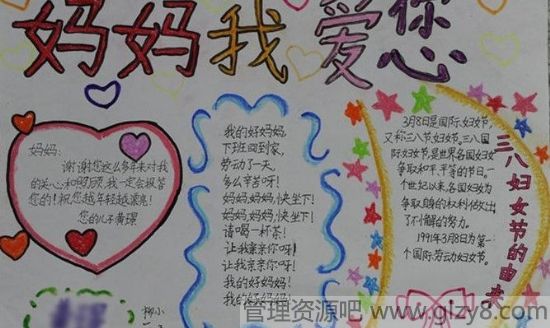 妈妈我爱您
妈妈:
谢谢您这么多年来对我
的关心和照顾,我一定会报答
您的!祝您越年轻越漂亮!
您的儿子黄璟
我的好妈妈,
下班回到家,
劳动了一天,
多么辛苦呀!
妈妈,妈妈,快坐下!
妈妈,妈妈,快坐下!
请喝一杯茶!
让我亲亲你呀!
让我亲亲你呀!
我的好妈妈!
我的好妈妈!
3月8日是国际妇女节,
又称三八节,妇女节。三八国
际妇女节,是世界各国妇女
争取和平,平等的节日。一
个世纪以来,各国妇女为
争取自身的权利做出
了不懈的努力。
1991年3月8日为第一
个国际劳动妇女节。
三八妇女节的由来
柳小
管理资源吧 www.glzy8.com